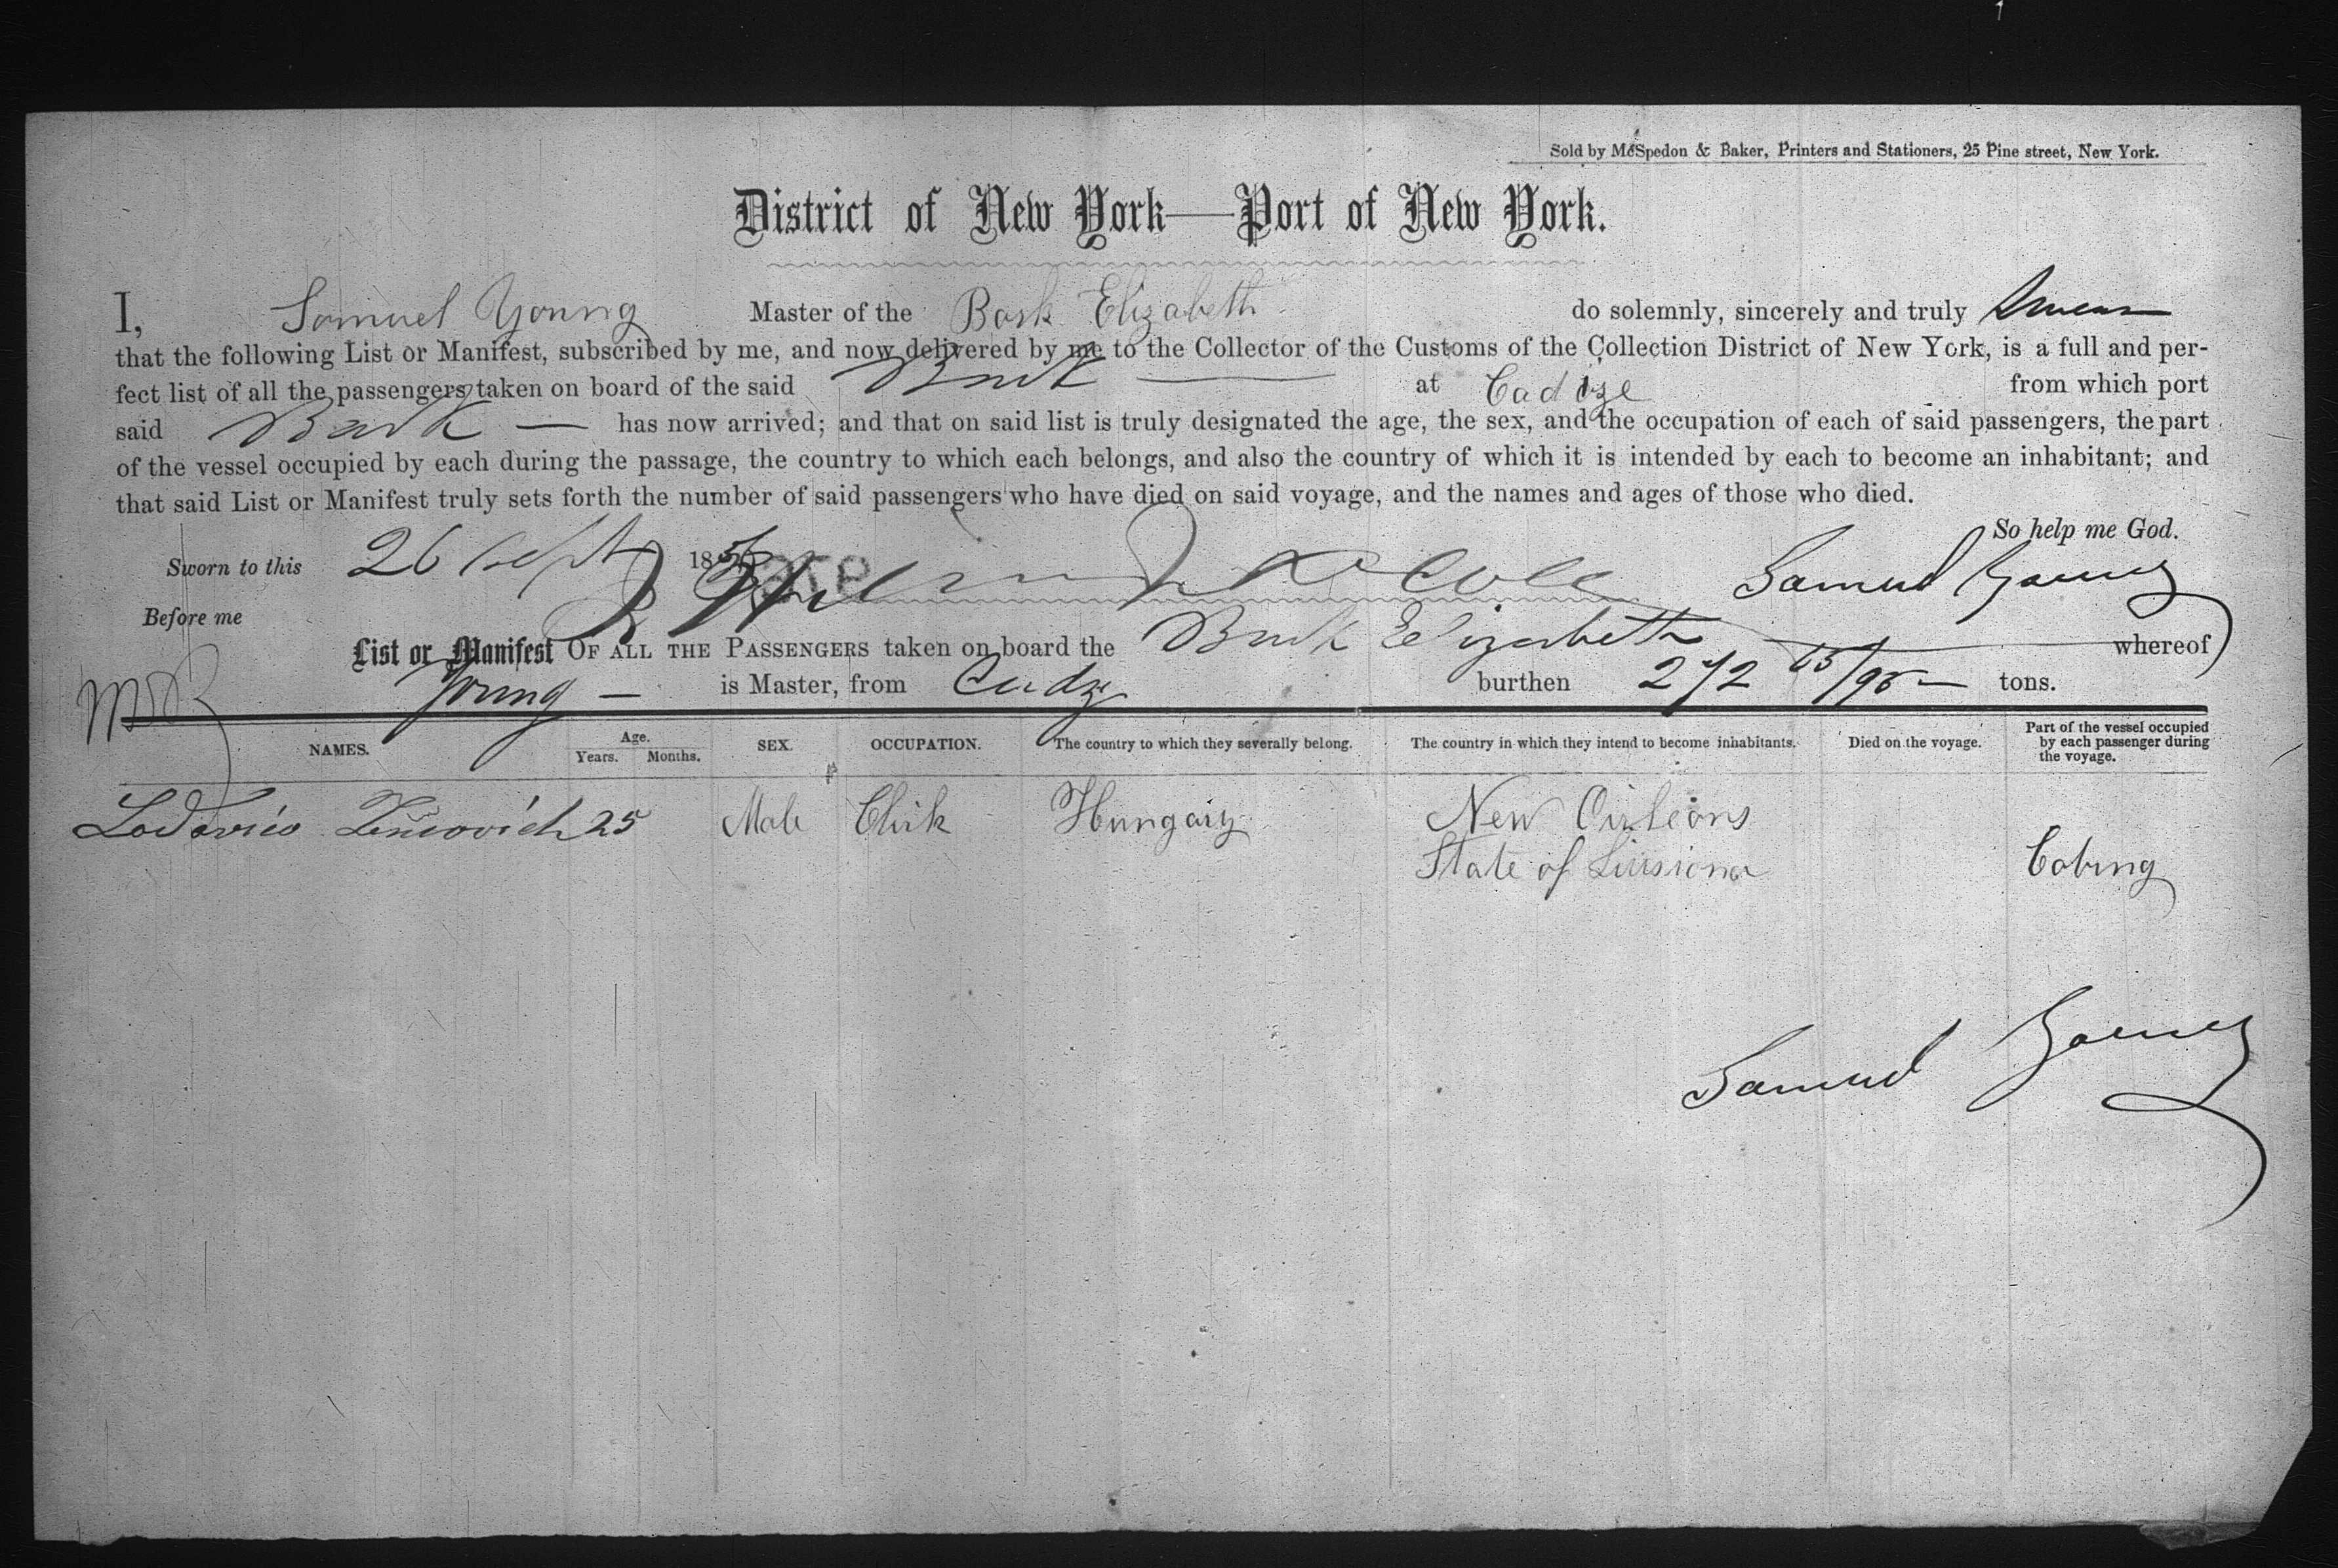 Sold by McSpedon & Baker, Printers and Stationers, 25 Pine street, New York.
District of New York—Port of New York.
I, Samuel Young Master of the Bark Elizabeth do solemnly, sincerely and truly Swear
that the following List or Manifest, subscribed by me, and now delivered by me to the Collector of the Customs of the Collection District of New York, is a full and per-
fect list of all the passengers taken on board of the said Bark — at Cadize from which port
said Bark — has now arrived; and that on said list is truly designated the age, the sex, and the occupation of each of said passengers, the part
of the vessel occupied by each during the passage, the country to which each belongs, and also the country of which it is intended by each to become an inhabitant; and
that said List or Manifest truly sets forth the number of said passengers who have died on said voyage, and the names and ages of those who died.
So help me God.
Sworn to this 26 Sept 185 Samuel Young
Before me
List or Manifest OF ALL THE PASSENGERS taken on board the Bark Elizabeth whereof
Young — is Master, from Cadz burthen 272 /95 — tons.
NAMES. Age. Years. Months. SEX. OCCUPATION. The country to which they severally belong. The country in which they intend to become inhabitants. Died on the voyage. Part of the vessel occupied by each passenger during the voyage.
Lodovico 25 Male Clirk Hungary New Orleans
State of Luisiona Cobing
Samuel Young